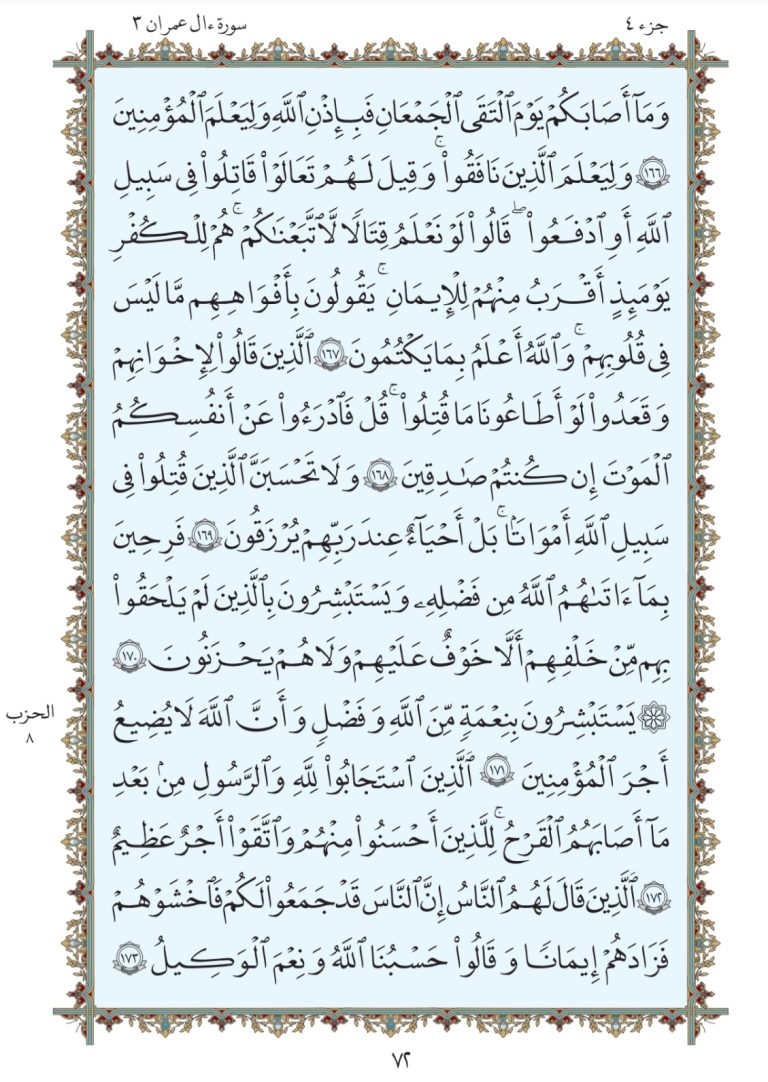 سورة ءال عمران ٣
جزء ٤
وَمَآ أَصَٰبَكُمْ يَوْمَ ٱلْتَقَى ٱلْجَمْعَانِ فَبِإِذْنِ ٱللَّهِ وَلِيَعْلَمَ ٱلْمُؤْمِنِينَ
١٦٦ وَلِيَعْلَمَ ٱلَّذِينَ نَافَقُوا۟ ۚ وَقِيلَ لَهُمْ تَعَالَوْا۟ قَاتِلُوا۟ فِى سَبِيلِ
ٱللَّهِ أَوِ ٱدْفَعُوا۟ ۖ قَالُوا۟ لَوْ نَعْلَمُ قِتَالًا لَّٱتَّبَعْنَٰكُمْ ۚ هُمْ لِلْكُفْرِ
يَوْمَئِذٍ أَقْرَبُ مِنْهُمْ لِلْإِيمَانِ ۚ يَقُولُونَ بِأَفْوَاهِهِم مَّا لَيْسَ
فِى قُلُوبِهِمْ ۚ وَٱللَّهُ أَعْلَمُ بِمَا يَكْتُمُونَ ١٦٧ ٱلَّذِينَ قَالُوا۟ لِإِخْوَانِهِمْ
وَقَعَدُوا۟ لَوْ أَطَاعُونَا مَا قُتِلُوا۟ ۗ قُلْ فَٱدْرَءُوا۟ عَنْ أَنفُسِكُمُ
ٱلْمَوْتَ إِن كُنتُمْ صَٰدِقِينَ ١٦٨ وَلَا تَحْسَبَنَّ ٱلَّذِينَ قُتِلُوا۟ فِى
سَبِيلِ ٱللَّهِ أَمْوَاتًۢا ۚ بَلْ أَحْيَآءٌ عِندَ رَبِّهِمْ يُرْزَقُونَ ١٦٩ فَرِحِينَ
بِمَآ ءَاتَىٰهُمُ ٱللَّهُ مِن فَضْلِهِۦ وَيَسْتَبْشِرُونَ بِٱلَّذِينَ لَمْ يَلْحَقُوا۟
بِهِم مِّنْ خَلْفِهِمْ أَلَّا خَوْفٌ عَلَيْهِمْ وَلَا هُمْ يَحْزَنُونَ ١٧٠
۞ يَسْتَبْشِرُونَ بِنِعْمَةٍ مِّنَ ٱللَّهِ وَفَضْلٍ وَأَنَّ ٱللَّهَ لَا يُضِيعُ
الحزب
٨
أَجْرَ ٱلْمُؤْمِنِينَ ١٧١ ٱلَّذِينَ ٱسْتَجَابُوا۟ لِلَّهِ وَٱلرَّسُولِ مِنۢ بَعْدِ
مَآ أَصَابَهُمُ ٱلْقَرْحُ ۚ لِلَّذِينَ أَحْسَنُوا۟ مِنْهُمْ وَٱتَّقَوْا۟ أَجْرٌ عَظِيمٌ
١٧٢ ٱلَّذِينَ قَالَ لَهُمُ ٱلنَّاسُ إِنَّ ٱلنَّاسَ قَدْ جَمَعُوا۟ لَكُمْ فَٱخْشَوْهُمْ
فَزَادَهُمْ إِيمَانًا وَقَالُوا۟ حَسْبُنَا ٱللَّهُ وَنِعْمَ ٱلْوَكِيلُ ١٧٣
٧٢